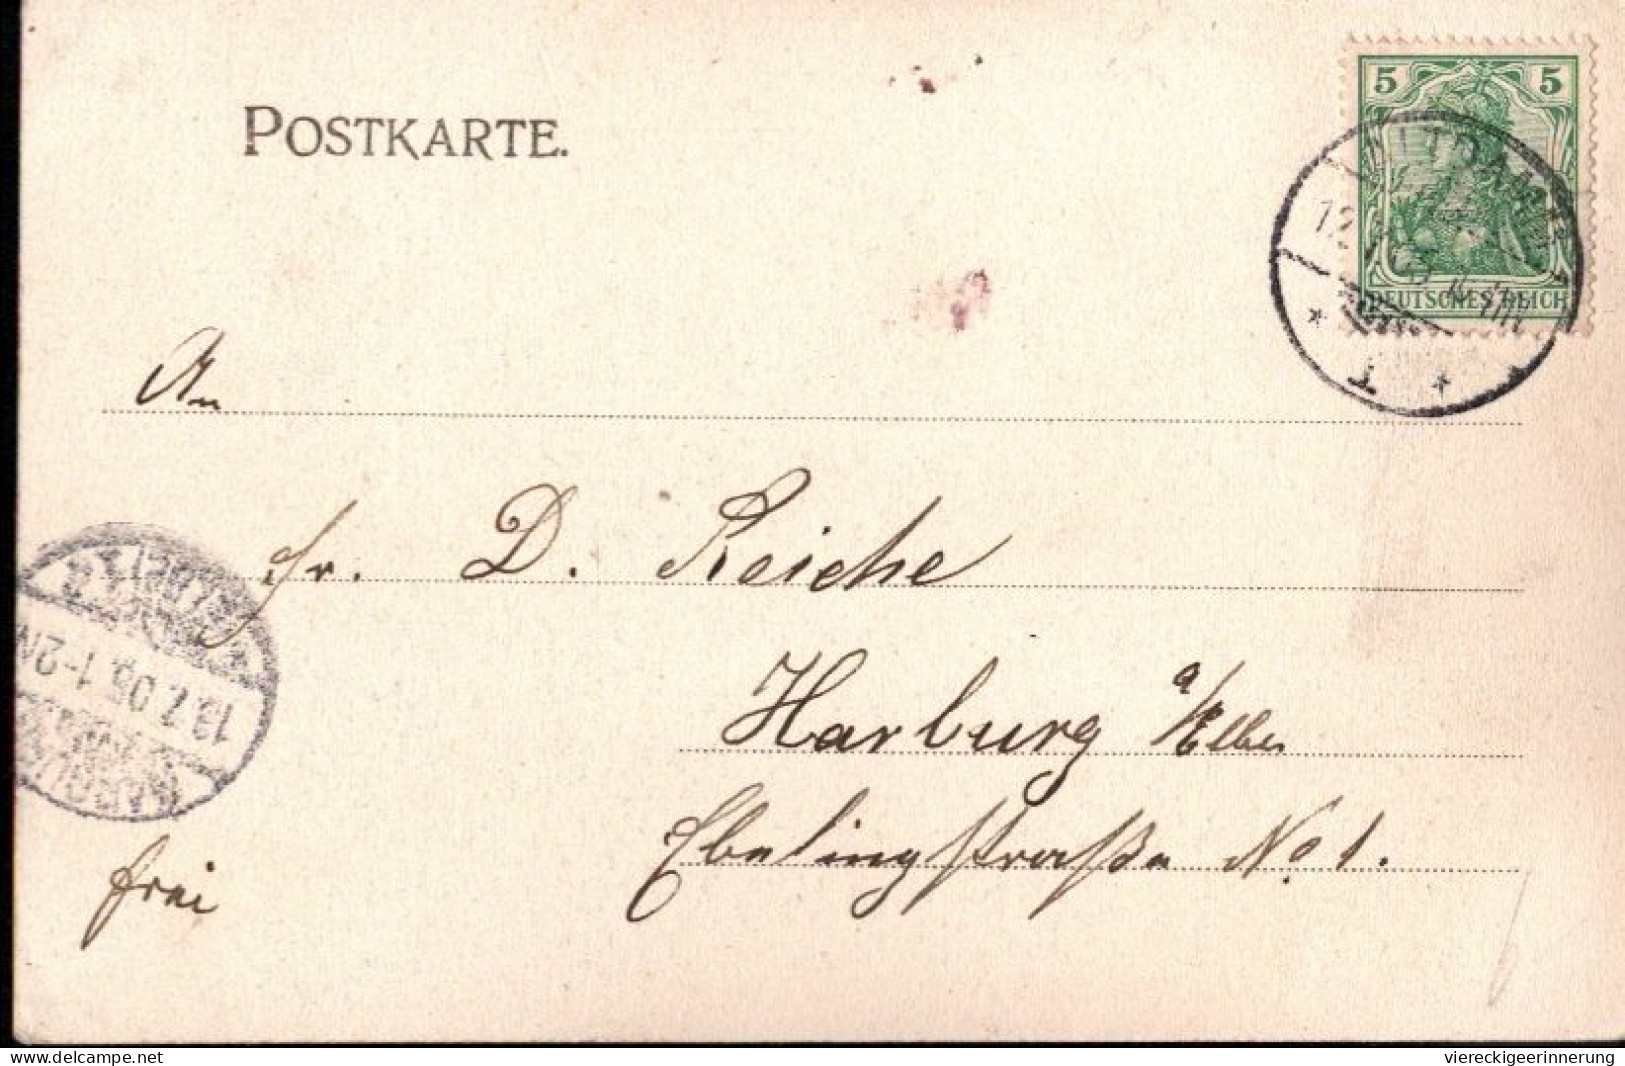 POSTKARTE.
5 5
DEUTSCHES REICH
An
Hr. D. Reiche
Harburg a/Elbe
Ebelingstraße No 1.
frei
13.7.05. 1-2N
www.delcampe.net
viereckigeerinnerung